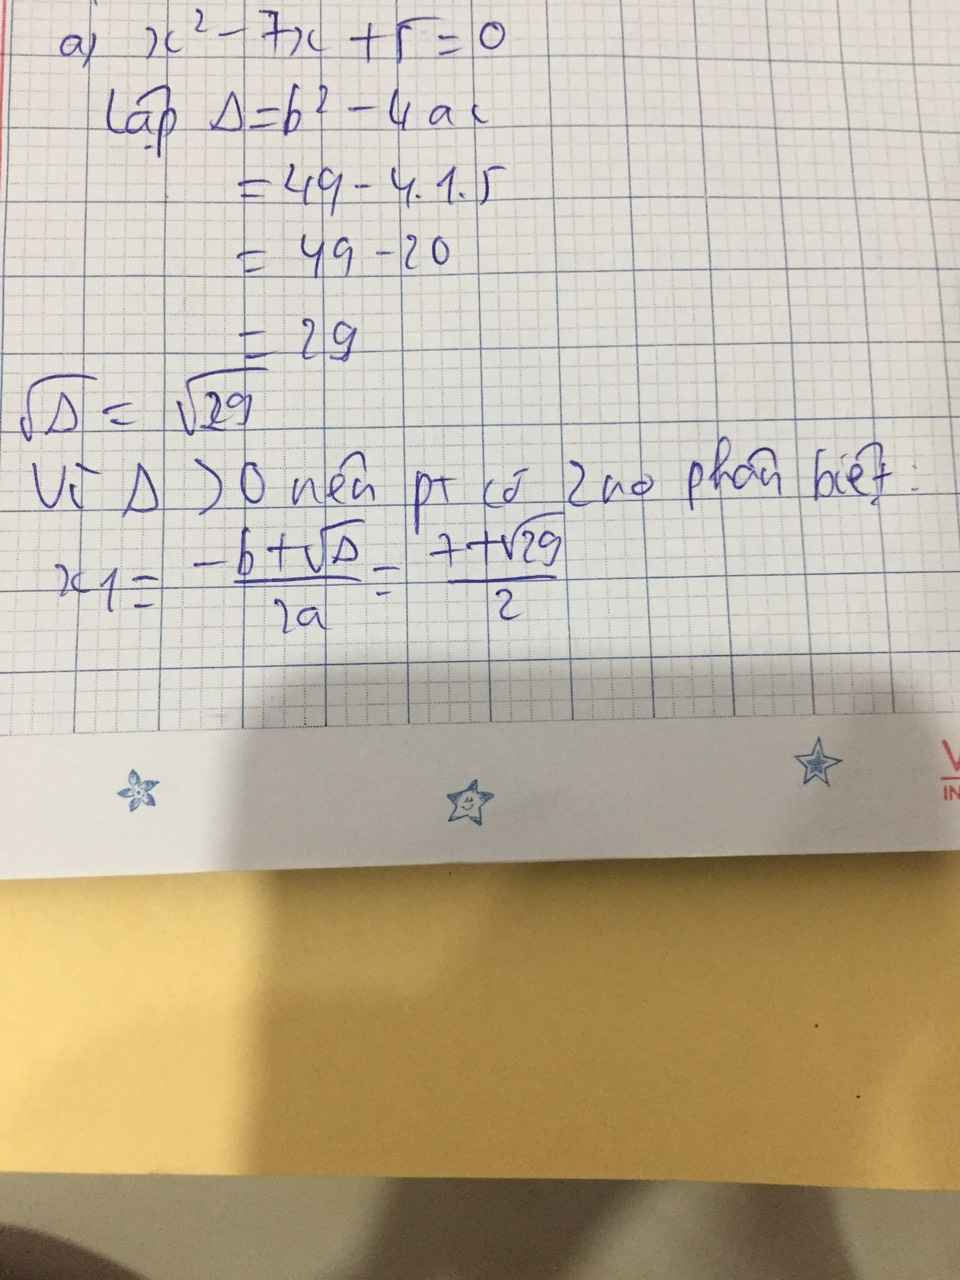 a) x² - 7x + 5 = 0
Lập Δ = b² - 4ac
= 49 - 4.1.5
= 49 - 20
= 29
√Δ = √29
Vì Δ > 0 nên pt có 2 no phân biệt:
x1 = (-b + √Δ)/2a = (7 + √29)/2
V
IN